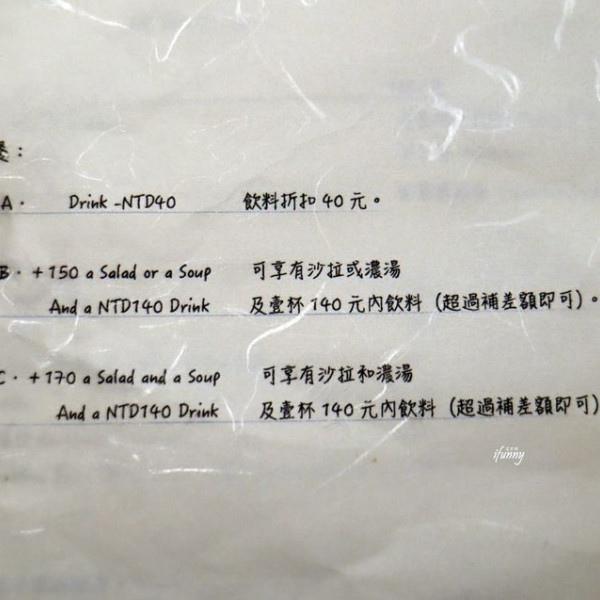 ：
A． Drink -NTD40 飲料折扣 40 元。
B．+150 a Salad or a Soup 可享有沙拉或濃湯
And a NTD140 Drink 及壹杯 140 元內飲料（超過補差額即可）。
C．+170 a Salad and a Soup 可享有沙拉和濃湯
And a NTD140 Drink 及壹杯 140 元內飲料（超過補差額即可）
ifunny